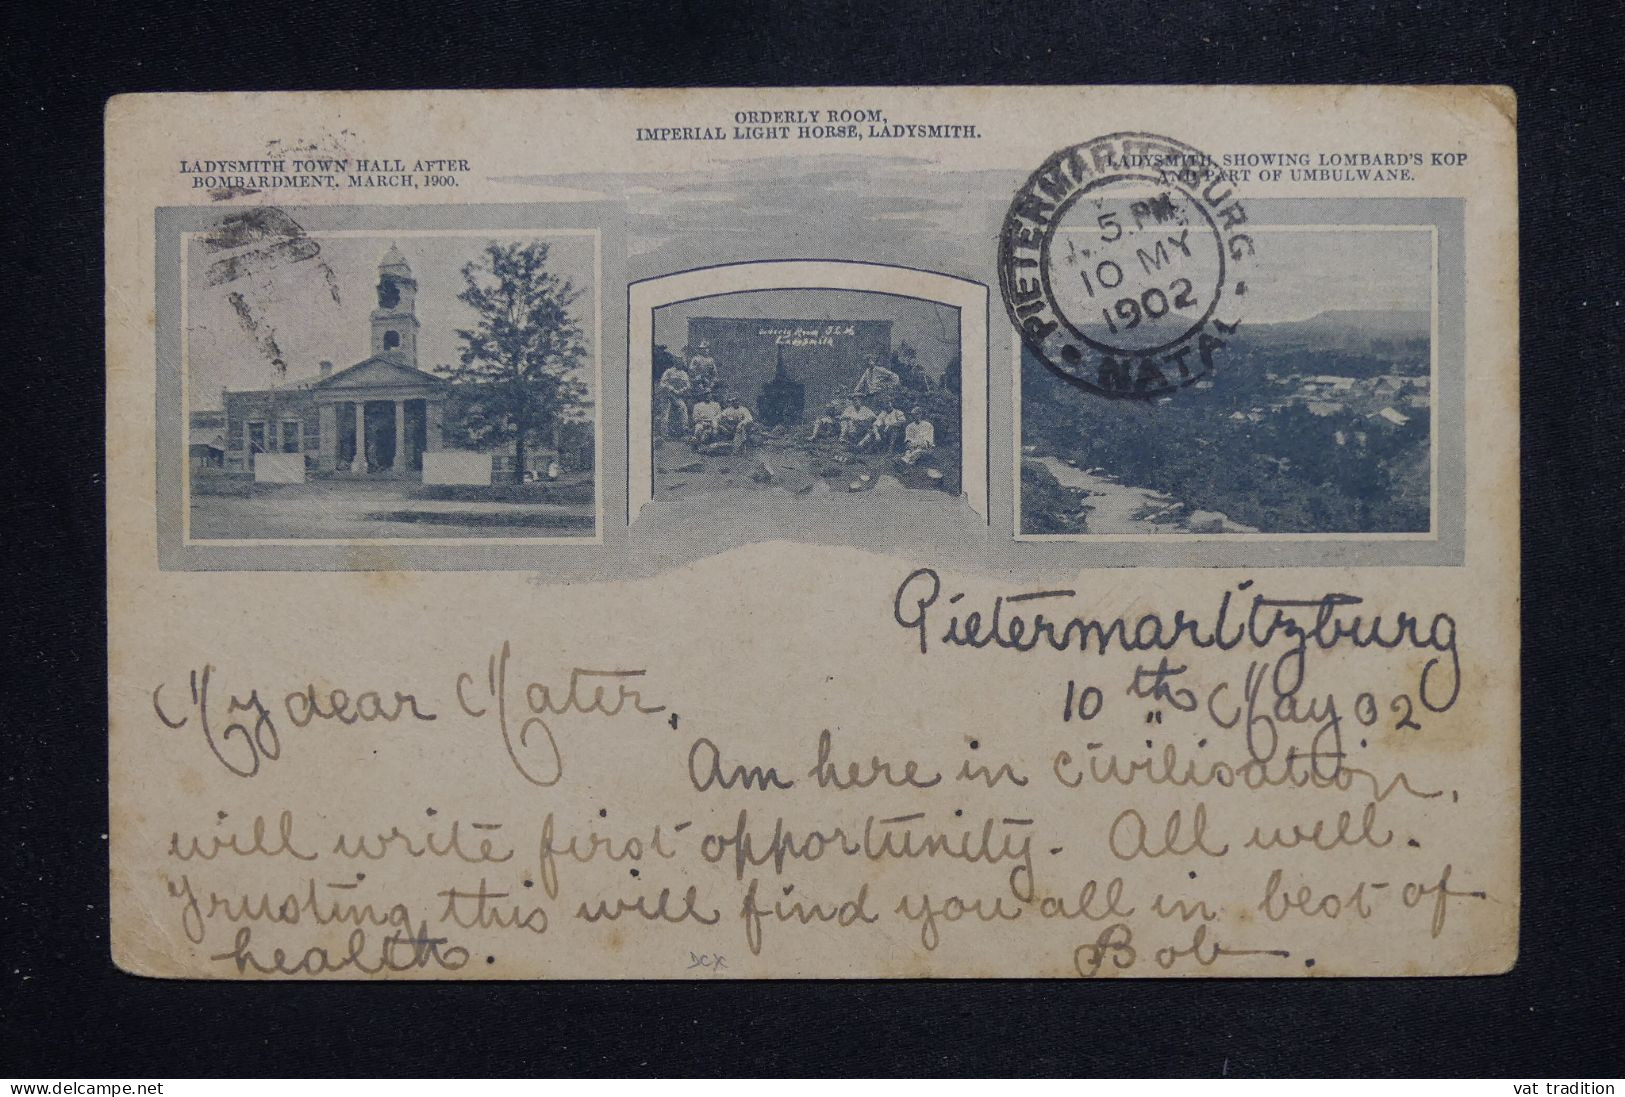 ORDERLY ROOM,
IMPERIAL LIGHT HORSE, LADYSMITH.
LADYSMITH TOWN HALL AFTER
BOMBARDMENT. MARCH, 1900.
LADYSMITH, SHOWING LOMBARD'S KOP
AND PART OF UMBULWANE.
Orderly Room I.L.H.
Ladysmith
PIETERMARITZBURG
5. PM
10 MY
1902
NATAL
Pietermaritzburg
10th May 02
My dear Mater,
Am here in civilisation,
will write first opportunity. All well.
Trusting this will find you all in best of
health.
Bob.
DCX
vat tradition